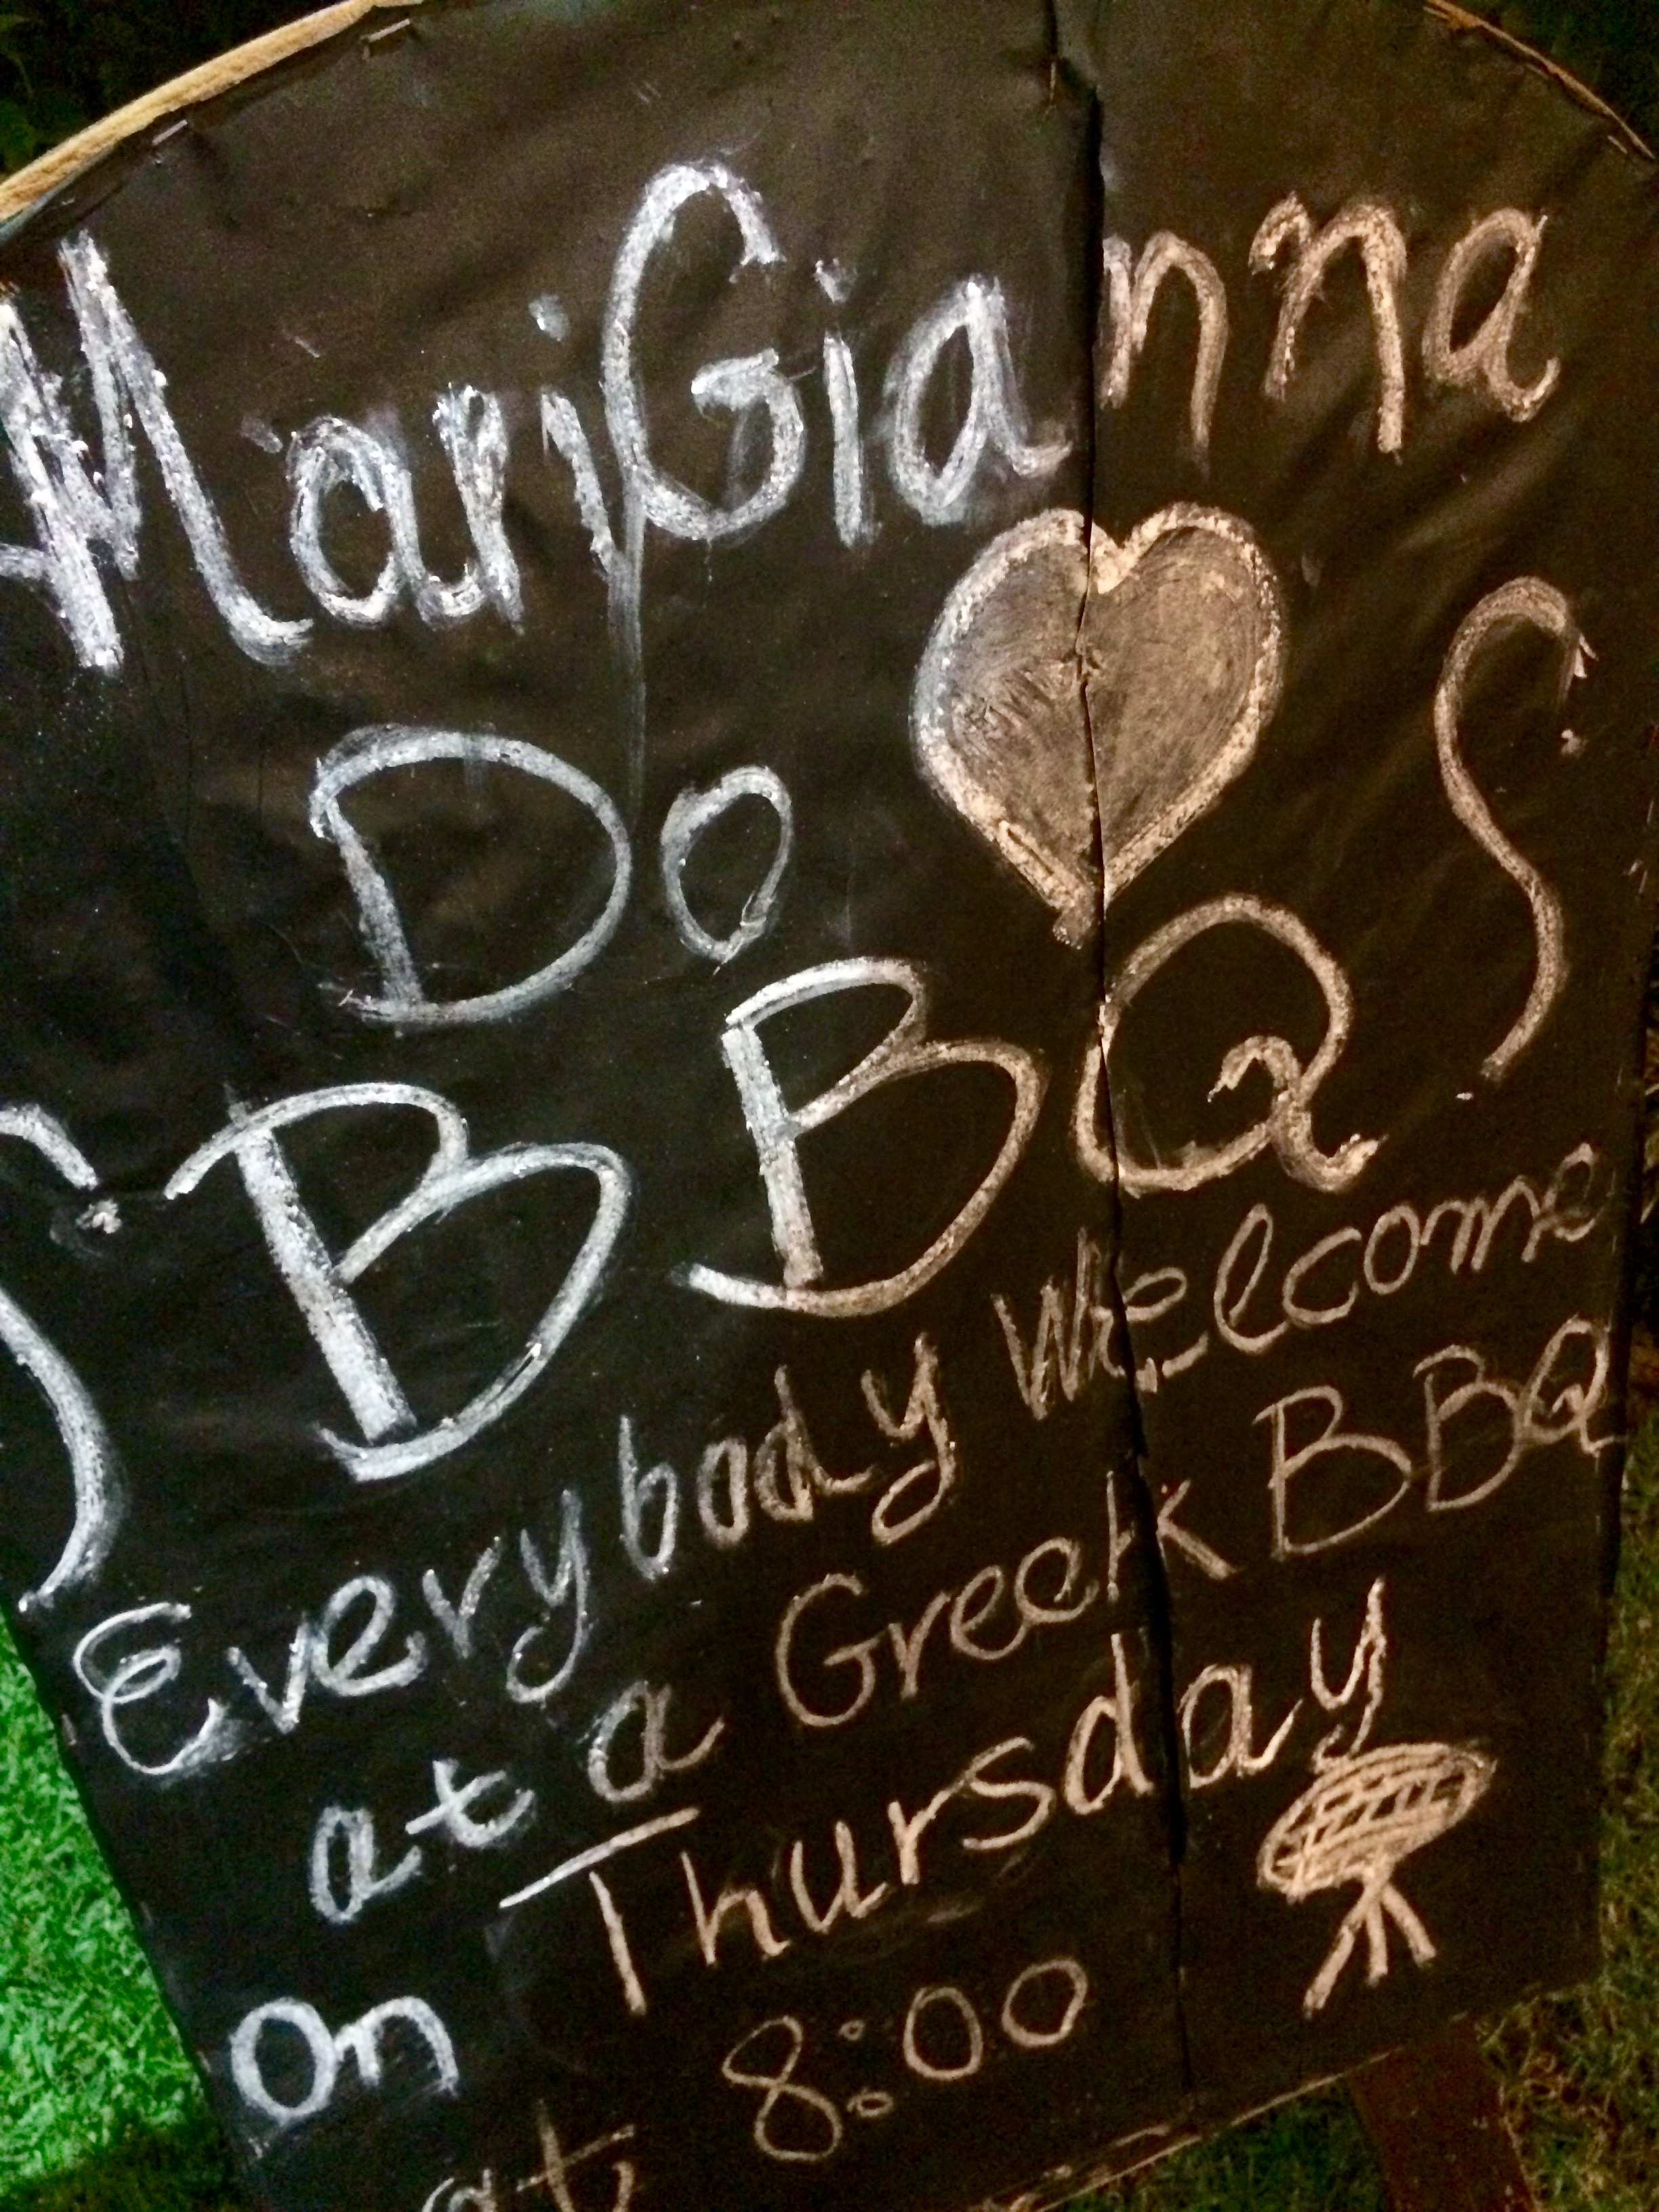 MariGianna
Do
BBQ
Everybody Welcome
at a Greek BBQ
On Thursday
at 8:00